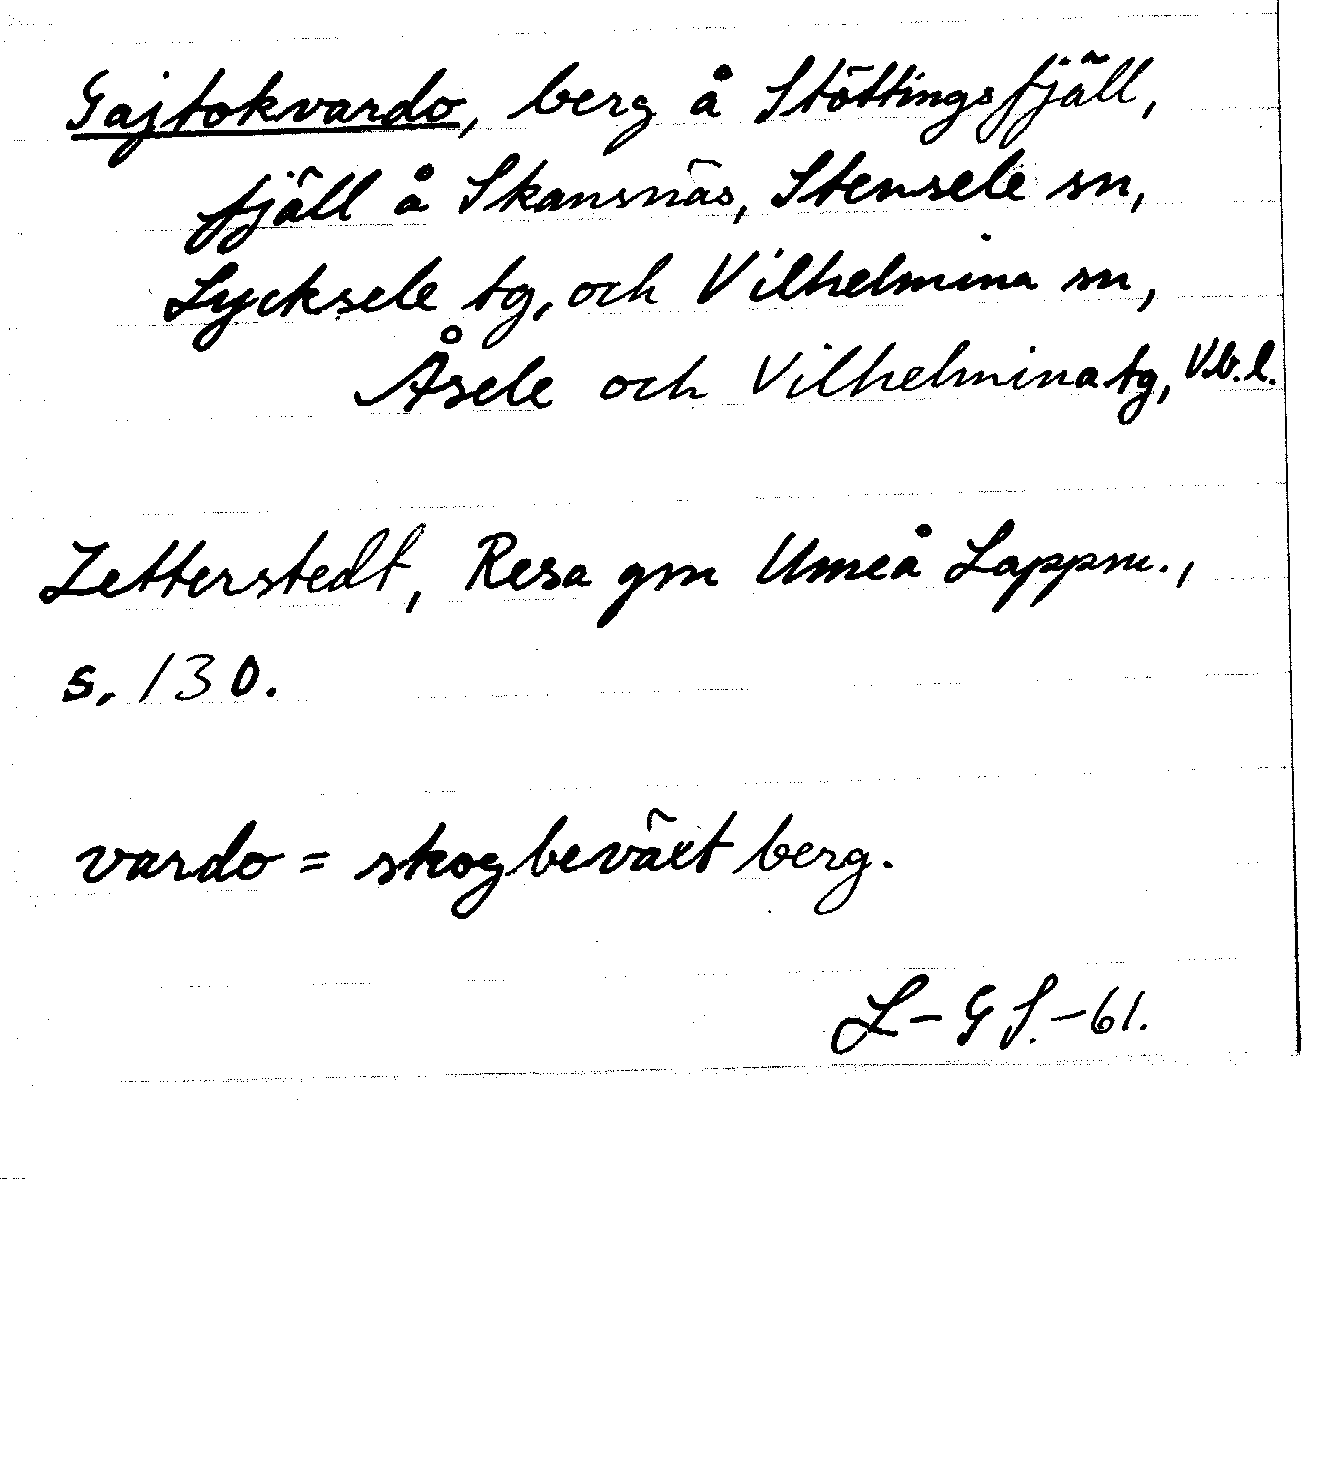 Gajtokvardo, berg å Stöttingsfjäll,
fjäll å Skansnäs, Stensele sn,
Lycksele tg, och Vilhelmina sn,
Åsele och Vilhelmina tg, Vb. l.
Zetterstedt, Resa gm Umeå Lappm.,
s. 130.
vardo = skogbeväxt berg.
L-G S.-61.